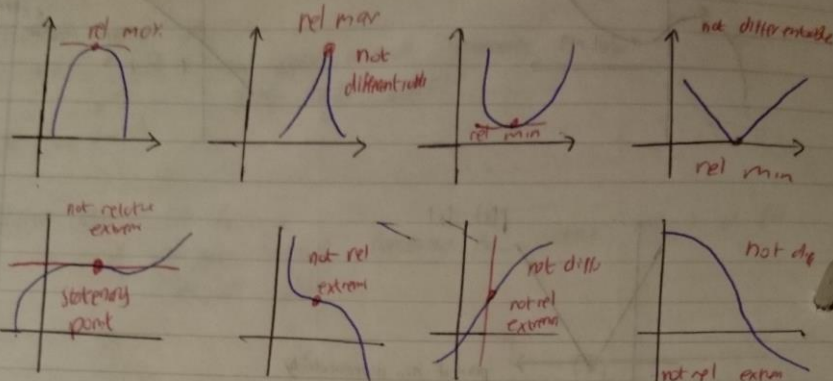 rel max
rel max
not
rel min
not differentiable
rel min
not relative
extrem
stationary
point
not rel
extremi
not diff
not rel
extrema
not diff
not rel extrem